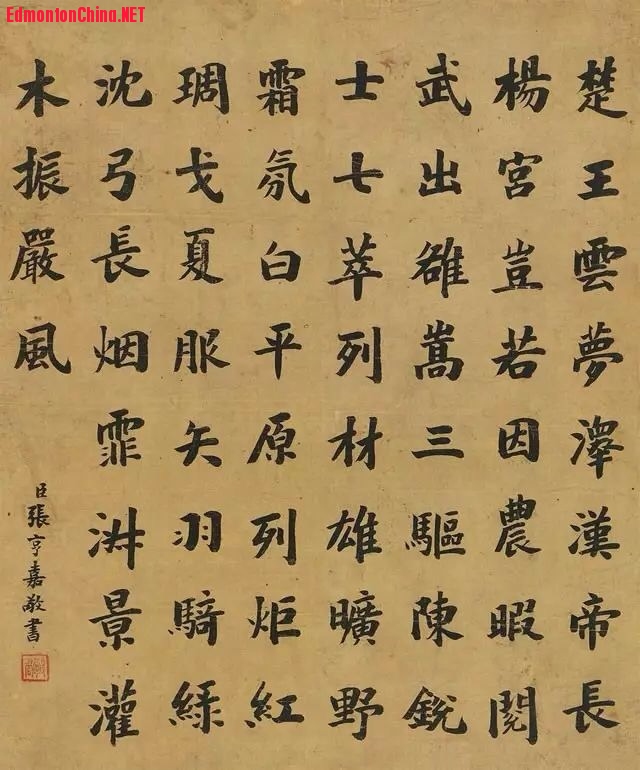 EdmontonChina.NET
楚王雲夢澤漢帝長
楊宮豈若因農暇閱
武出雒嵩三驅陳銳
士七萃列材雄曠野
霜氛白平原列炬紅
琱戈夏服矢羽騎綠
沈弓長烟霏景灌
木振嚴風
臣張亨嘉敬書